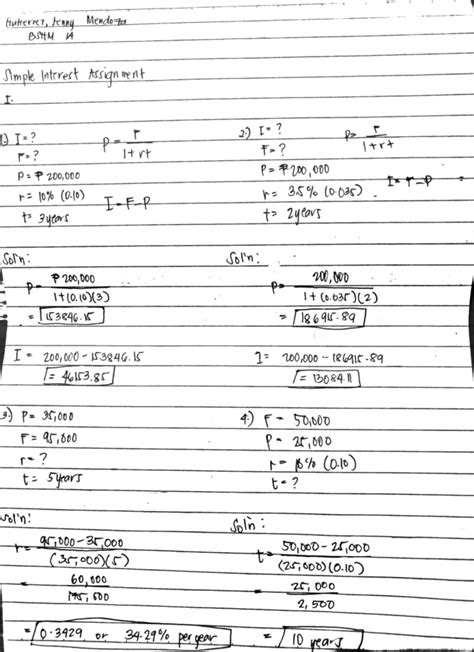 Gutierrez, Jenny Mendoza
BSHM 1A
Simple Interest Assignment
I.
1.) I = ?
F = ?
P = ₱ 200,000
r = 10% (0.10)
t = 3 years
P = F / 1 + rt
I = F - P
2.) I = ?
F = ?
P = ₱ 200,000
r = 3.5% (0.035)
t = 2 years
P = F / 1 + rt
I = F - P
Sol'n:
P = ₱ 200,000 / 1 + (0.10)(3)
= 153846.15
I = 200,000 - 153846.15
= 46153.85
Sol'n:
P = 200,000 / 1 + (0.035)(2)
= 186915.89
I = 200,000 - 186915.89
= 13084.11
3.) P = 35,000
F = 95,000
r = ?
t = 5 years
4.) F = 50,000
P = 25,000
r = 10% (0.10)
t = ?
Sol'n:
r = 95,000 - 35,000 / (35,000)(5)
= 60,000 / 175,000
= 0.3429 or 34.29% per year
Sol'n:
t = 50,000 - 25,000 / (25,000)(0.10)
= 25,000 / 2,500
= 10 years